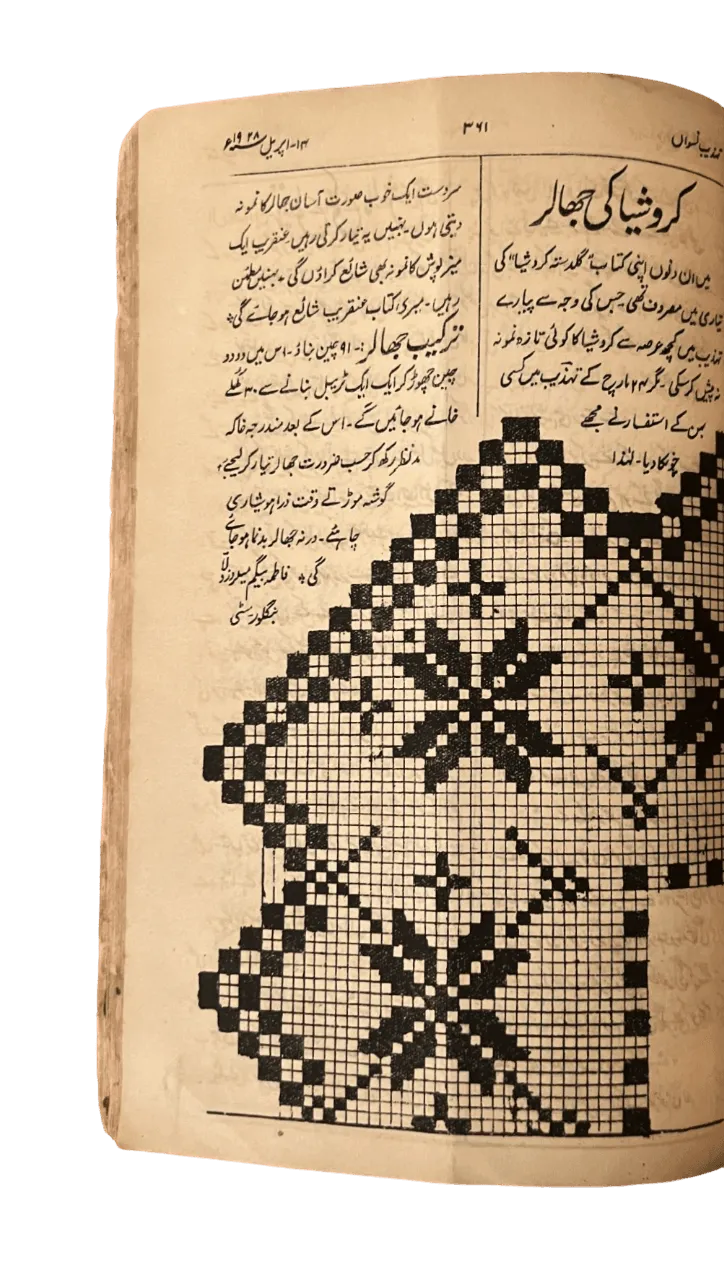 تہذیب نسواں
۳۶۱
۱۴-اپریل ۱۹۲۸ء
کروشیا کی جھالر
میں ان دنوں اپنی کتاب "گلدستہ کروشیا" کی
تیاری میں مصروف تھی جس کی وجہ سے پیارے
تہذیب میں کچھ عرصہ سے کروشیا کا کوئی تازہ نمونہ
نہ پیش کرسکی۔ مگر ۲۴ مارچ کے تہذیب میں کسی
بہن کے استفسار نے مجھے
چونکا دیا۔ لہٰذا
سردست ایک خوب صورت آسان جھالر کا نمونہ
دیتی ہوں۔ بہنیں یہ تیار کرتی رہیں۔ عنقریب ایک
میز پوش کا نمونہ بھی شائع کراؤں گی۔ بہنیں مطمئن
رہیں۔ میری کتاب عنقریب شائع ہو جائے گی۔
ترکیب جھالر:- ۹۱ چین بناؤ۔ اس میں دو دو
چین چھوڑ کر ایک ایک ٹریبل بنانے سے ۳۰ کھلے
خانے ہو جائیں گے۔ اس کے بعد مندرجہ خاکہ
مدنظر رکھ کر حسب ضرورت جھالر تیار کر لیجئے۔
گوشہ موڑتے وقت ذرا ہوشیاری
چاہئے۔ ورنہ جھالر بدنما ہو جائے
گی۔ فاطمہ بیگم
بنگلور سٹی